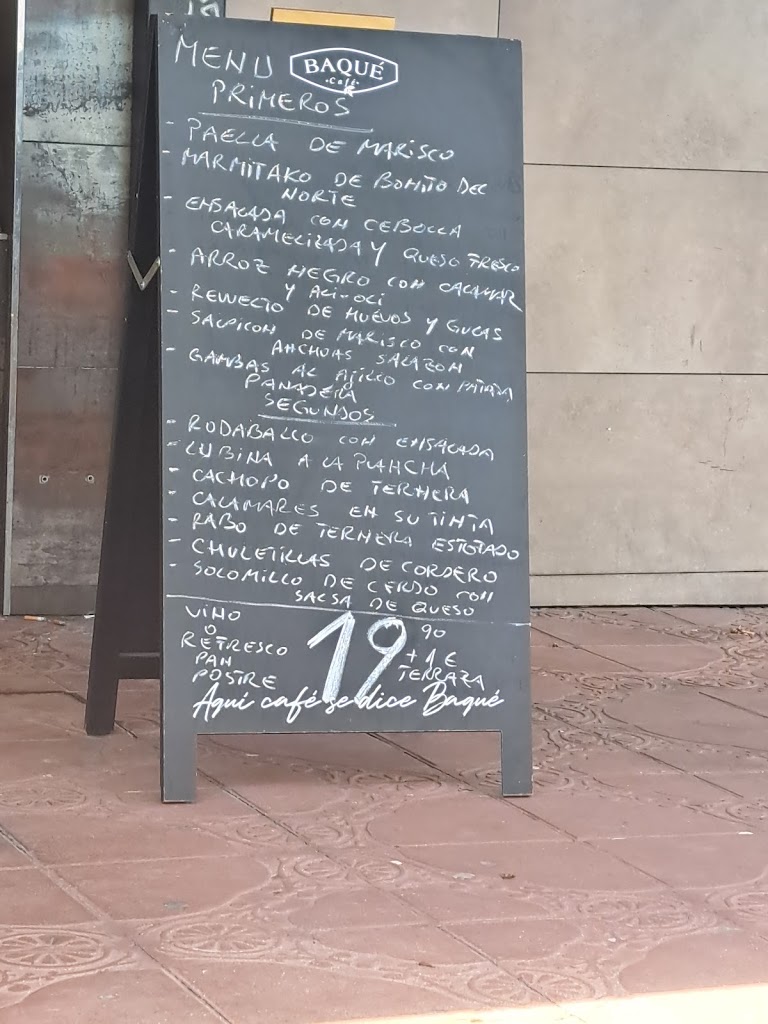 MENU
BAQUÉ
café
PRIMEROS
- PAELLA DE MARISCO
- MARMITAKO DE BONITO DEL
NORTE
- ENSALADA CON CEBOLLA
CARAMELIZADA Y QUESO FRESCO
- ARROZ NEGRO CON CALAMAR
Y ALI-OLI
- REVUELTO DE HUEVOS Y GULAS
- SALPICON DE MARISCO CON
ANCHOAS SALAZON
- GAMBAS AL AJILLO CON PATATA
PANADERA
SEGUNDOS
- RODABALLO CON ENSALADA
- LUBINA A LA PLANCHA
- CACHOPO DE TERNERA
- CALAMARES EN SU TINTA
- RABO DE TERNERA ESTOFADO
- CHULETILLAS DE CORDERO
- SOLOMILLO DE CERDO CON
SALSA DE QUESO
VINO
O
REFRESCO
PAN
POSTRE
19 90
+ 1 €
TERRAZA
Aquí café se dice Baqué